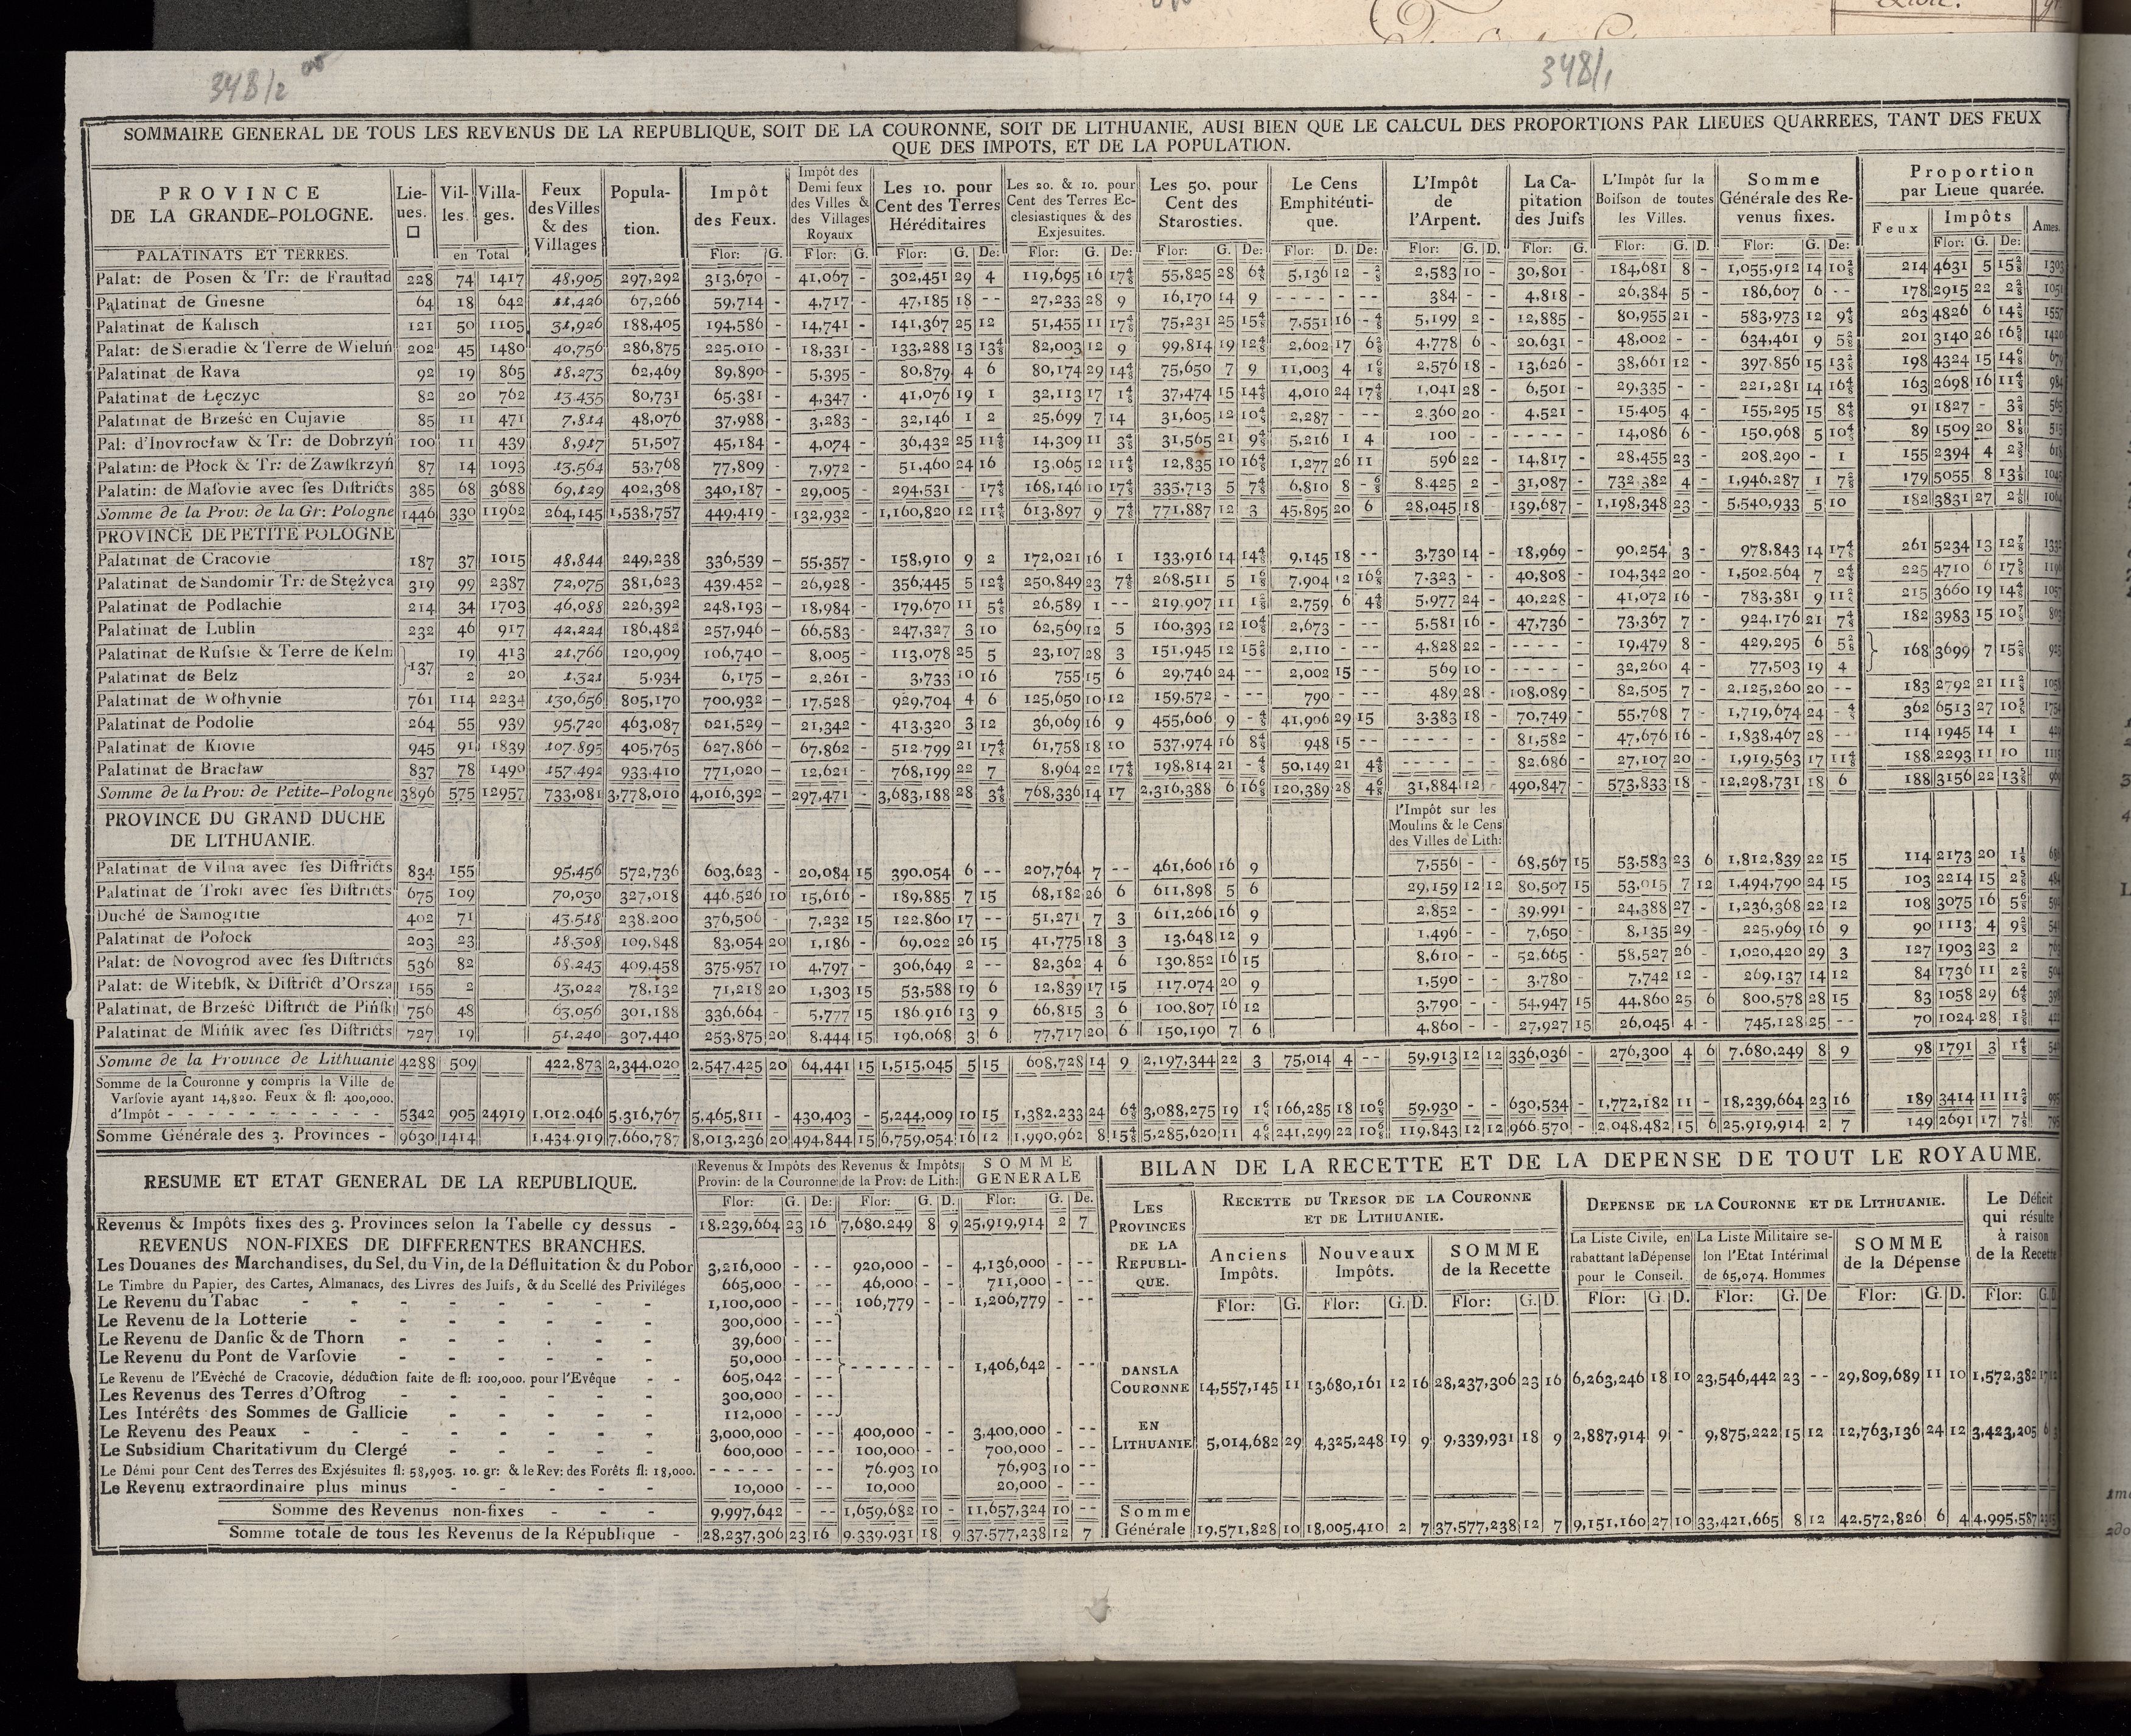 348/2
348/1
SOMMAIRE GENERAL DE TOUS LES REVENUS DE LA REPUBLIQUE, SOIT DE LA COURONNE, SOIT DE LITHUANIE, AUSI BIEN QUE LE CALCUL DES PROPORTIONS PAR LIEUES QUARREES, TANT DES FEUX
QUE DES IMPOTS, ET DE LA POPULATION.
PROVINCE DE LA GRANDE-POLOGNE. | Lieues. □ | Villes. | Villages. | Feux des Villes & des Villages | Population. | Impôt des Feux. | Impôt des Demi feux des Villes & des Villages Royaux | Les 10. pour Cent des Terres Héréditaires | Les 20. & 10. pour Cent des Terres Ecclesiastiques & des Exjesuites. | Les 50. pour Cent des Starosties. | Le Cens Emphitéutique. | L'Impôt de l'Arpent. | La Capitation des Juifs | L'Impôt ſur la Boiſson de toutes les Villes. | Somme Générale des Revenus fixes. | Proportion par Lieue quarée.
PALATINATS ET TERRES. | en Total | Flor: G. | Flor: G. | Flor: G. De: | Flor: G. De: | Flor: G. De: | Flor: D. De: | Flor: G. D. | Flor: G. | Flor: G. D. | Flor: G. De: | Feux | Impôts Flor: G. De: | Ames.
Palat: de Posen & Tr: de Frauſtad 228 74 1417 48,905 297,292 313,670 - 41,067 - 302,451 29 4 119,695 16 17 4/8 55,825 28 6 4/8 5,136 12 - 2/8 2,583 10 - 30,801 - 184,681 8 - 1,055,912 14 10 2/8 214 4631 5 15 2/8 1303
Palatinat de Gnesne 64 18 642 11,426 67,266 59,714 - 4,717 - 47,185 18 - - 27,233 28 9 16,170 14 9 - - - - - - 384 - - 4,818 - 26,384 5 - 186,607 6 - - 178 2915 22 2 2/8 1051
Palatinat de Kalisch 121 50 1105 31,926 188,405 194,586 - 14,741 - 141,367 25 12 51,455 11 17 4/8 75,231 25 15 4/8 7,551 16 - 4/8 5,199 2 - 12,885 - 80,955 21 - 583,973 12 9 4/8 263 4826 6 14 2/8 1557
Palat: de Sieradie & Terre de Wieluń 202 45 1480 40,756 286,875 225,010 - 18,331 - 133,288 13 13 4/8 82,003 12 9 99,814 19 12 4/8 2,602 17 6 2/8 4,778 6 - 20,631 - 48,002 - - 634,461 9 5 2/8 201 3140 26 16 5/8 1420
Palatinat de Rava 92 19 865 18,273 62,469 89,890 - 5,395 - 80,879 4 6 80,174 29 14 4/8 75,650 7 9 11,003 4 1 6/8 2,576 18 - 13,626 - 38,661 12 - 397,856 15 13 2/8 198 4324 15 14 6/8 679
Palatinat de Łęczyc 82 20 762 13,435 80,731 65,381 - 4,347 - 41,076 19 1 32,113 17 1 4/8 37,474 15 14 4/8 4,010 24 17 4/8 1,041 28 - 6,501 - 29,335 - - 221,281 14 16 4/8 163 2698 16 11 4/8 984
Palatinat de Brześć en Cujavie 85 11 471 7,814 48,076 37,988 - 3,283 - 32,146 1 2 25,699 7 14 31,605 12 10 4/8 2,287 - - - 2,360 20 - 4,521 - 15,405 4 - 155,295 15 8 4/8 91 1827 - 3 2/8 565
Pal: d'Inovrocław & Tr: de Dobrzyń 100 11 439 8,917 51,507 45,184 - 4,074 - 36,432 25 11 4/8 14,309 11 3 4/8 31,565 21 9 4/8 5,216 1 4 100 - - - - - - 14,086 6 - 150,968 5 10 4/8 89 1509 20 8 1/8 515
Palatin: de Płock & Tr: de Zawſkrzyń 87 14 1093 13,564 53,768 77,809 - 7,972 - 51,460 24 16 13,065 12 11 4/8 12,835 10 16 4/8 1,277 26 11 596 22 - 14,817 - 28,455 23 - 208,290 - 1 155 2394 4 2 3/8 618
Palatin: de Maſovie avec ſes Diſtricts 385 68 3688 69,129 402,368 340,187 - 29,005 - 294,531 - 17 4/8 168,146 10 17 4/8 335,713 5 7 4/8 6,810 8 - 6/8 8,425 2 - 31,087 - 732,382 4 - 1,946,287 1 7 2/8 179 5055 8 13 1/8 1045
Somme de la Prov: de la Gr: Pologne 1446 330 11962 264,145 1,538,757 449,419 - 132,932 - 1,160,820 12 11 4/8 613,897 9 7 4/8 771,887 12 3 45,895 20 6 28,045 18 - 139,687 - 1,198,348 23 - 5,540,933 5 10 182 3831 27 2 1/8 1064
PROVINCE DE PETITE POLOGNE
Palatinat de Cracovie 187 37 1015 48,844 249,238 336,539 - 55,357 - 158,910 9 2 172,021 16 1 133,916 14 14 4/8 9,145 18 - - 3,730 14 - 18,969 - 90,254 3 - 978,843 14 17 4/8 261 5234 13 12 7/8 1332
Palatinat de Sandomir Tr: de Stężyca 319 99 2387 72,075 381,623 439,452 - 26,928 - 356,445 5 12 4/8 250,849 23 7 4/8 268,511 5 1 6/8 7,904 12 16 6/8 7,323 - - 40,808 - 104,342 20 - 1,502,564 7 2 4/8 225 4710 6 17 5/8 1196
Palatinat de Podlachie 214 34 1703 46,088 226,392 248,193 - 18,984 - 179,670 11 5 4/8 26,589 1 - - 219,907 11 1 2/8 2,759 6 4 4/8 5,977 24 - 40,228 - 41,072 16 - 783,381 9 11 2/8 215 3660 19 14 4/8 1057
Palatinat de Lublin 232 46 917 42,224 186,482 257,946 - 66,583 - 247,327 3 10 62,569 12 5 160,393 12 10 4/8 2,673 - - - 5,581 16 - 47,736 - 73,367 7 - 924,176 21 7 4/8 182 3983 15 10 7/8 803
Palatinat de Ruſsie & Terre de Kelm } 137 19 413 21,766 120,909 106,740 - 8,005 - 113,078 25 5 23,107 28 3 151,945 12 15 2/8 2,110 - - - 4,828 22 - - - - - 19,479 8 - 429,295 6 5 2/8 } 168 3699 7 15 2/8 925
Palatinat de Belz 2 20 1,321 5,934 6,175 - 2,261 - 3,733 10 16 755 15 6 29,746 24 - - 2,002 15 - - 569 10 - - - - - 32,260 4 - 77,503 19 4
Palatinat de Wołhynie 761 114 2234 130,656 805,170 700,932 - 17,528 - 929,704 4 6 125,650 10 12 159,572 - - - 790 - - - 489 28 - 108,089 - 82,505 7 - 2,125,260 20 - - 183 2792 21 11 2/8 1058
Palatinat de Podolie 264 55 939 95,720 463,087 621,529 - 21,342 - 413,320 3 12 36,069 16 9 455,606 9 - 4/8 41,906 29 15 3,383 18 - 70,749 - 55,768 7 - 1,719,674 24 - 4/8 362 6513 27 10 5/8 1754
Palatinat de Kiovie 945 91 1839 107,895 405,765 627,866 - 67,862 - 512,799 21 17 4/8 61,758 18 10 537,974 16 8 4/8 948 15 - - - - - - - 81,582 - 47,676 16 - 1,838,467 28 - - 114 1945 14 1 429
Palatinat de Bracław 837 78 1490 157,492 933,410 771,020 - 12,621 - 768,199 22 7 8,964 22 17 4/8 198,814 21 - 4/8 50,149 21 4 4/8 - - - - - 82,686 - 27,107 20 - 1,919,563 17 11 4/8 188 2293 11 10 1115
Somme de la Prov: de Petite-Pologne 3896 575 12957 733,081 3,778,010 4,016,392 - 297,471 - 3,683,188 28 3 4/8 768,336 14 17 2,316,388 6 16 6/8 120,389 28 4 6/8 31,884 12 - 490,847 - 573,833 18 - 12,298,731 18 6 188 3156 22 13 5/8 969
PROVINCE DU GRAND DUCHE DE LITHUANIE. | l'Impôt sur les Moulins & le Cens des Villes de Lith:
Palatinat de Vilna avec ſes Diſtricts 834 155 95,456 572,736 603,623 - 20,084 15 390,054 6 - - 207,764 7 - - 461,606 16 9 7,556 - - 68,567 15 53,583 23 6 1,812,839 22 15 114 2173 20 1 1/8 686
Palatinat de Troki avec ſes Diſtricts 675 109 70,030 327,018 446,526 10 15,616 - 189,885 7 15 68,182 26 6 611,898 5 6 29,159 12 12 80,507 15 53,015 7 12 1,494,790 24 15 103 2214 15 2 5/8 484
Duché de Samogitie 402 71 43,518 238,200 376,506 - 7,232 15 122,860 17 - - 51,271 7 3 611,266 16 9 2,852 - - 39,991 - 24,388 27 - 1,236,368 22 12 108 3075 16 5 6/8 592
Palatinat de Połock 203 23 18,308 109,848 83,054 20 1,186 - 69,022 26 15 41,775 18 3 13,648 12 9 1,496 - - 7,650 - 8,135 29 - 225,969 16 9 90 1113 4 9 2/8 541
Palat: de Novogrod avec ſes Diſtricts 536 82 68,243 409,458 375,957 10 4,797 - 306,649 2 - - 82,362 4 6 130,852 16 15 8,610 - - 52,665 - 58,527 26 - 1,020,420 29 3 127 1903 23 2 763
Palat: de Witebſk, & Diſtrict d'Orsza 155 2 13,022 78,132 71,218 20 1,303 15 53,588 19 6 12,839 17 15 117,074 20 9 1,590 - - 3,780 - 7,742 12 - 269,137 14 12 84 1736 11 2 2/8 504
Palatinat, de Brześć Diſtrict de Pińſk 756 48 63,056 301,188 336,664 - 5,777 15 186,916 13 9 66,815 3 6 100,807 16 12 3,790 - - 54,947 15 44,860 25 6 800,578 28 15 83 1058 29 6 4/8 398
Palatinat de Mińſk avec ſes Diſtricts 727 19 51,240 307,440 253,875 20 8,444 15 196,068 3 6 77,717 20 6 150,190 7 6 4,860 - - 27,927 15 26,045 4 - 745,128 25 - - 70 1024 28 1 5/8 422
Somme de la Province de Lithuanie 4288 509 422,873 2,344,020 2,547,425 20 64,441 15 1,515,045 5 15 608,728 14 9 2,197,344 22 3 75,014 4 - - 59,913 12 12 336,036 - 276,300 4 6 7,680,249 8 9 98 1791 3 1 4/8 546
Somme de la Couronne y compris la Ville de
Varſovie ayant 14,820. Feux & fl: 400,000.
d'Impôt - - - 5342 905 24919 1,012,046 5,316,767 5,465,811 - 430,403 - 5,244,009 10 15 1,382,233 24 6 4/8 3,088,275 19 1 6/8 166,285 18 10 6/8 59,930 - - 630,534 - 1,772,182 11 - 18,239,664 23 16 189 3414 11 11 2/8 995
Somme Générale des 3. Provinces - 9630 1414 1,434,919 7,660,787 8,013,236 20 494,844 15 6,759,054 16 12 1,990,962 8 15 4/8 5,285,620 11 4 6/8 241,299 22 10 6/8 119,843 12 12 966,570 - 2,048,482 15 6 25,919,914 2 7 149 2691 17 7 1/8 795
RESUME ET ETAT GENERAL DE LA REPUBLIQUE. | Revenus & Impôts des Provin: de la Couronne | Revenus & Impôts de la Prov: de Lith: | SOMME GENERALE
Flor: G. De: | Flor: G. D. | Flor: G. De.
Revenus & Impôts fixes des 3. Provinces selon la Tabelle cy dessus - 18,239,664 23 16 7,680,249 8 9 25,919,914 2 7
REVENUS NON-FIXES DE DIFFERENTES BRANCHES.
Les Douanes des Marchandises, du Sel, du Vin, de la Défluitation & du Pobor 3,216,000 - - - 920,000 - - 4,136,000 - - -
Le Timbre du Papier, des Cartes, Almanacs, des Livres des Juifs, & du Scellé des Priviléges 665,000 - - - 46,000 - - 711,000 - - -
Le Revenu du Tabac - - - 1,100,000 - - - 106,779 - - 1,206,779 - - -
Le Revenu de la Lotterie - - - 300,000 - - -
Le Revenu de Danſic & de Thorn - - - 39,600 - - -
Le Revenu du Pont de Varſovie - - - 50,000 - - - } - - - - - - - 1,406,642 - - -
Le Revenu de l'Evêché de Cracovie, déduction faite de fl: 100,000. pour l'Evêque - - 605,042 - - -
Les Revenus des Terres d'Oſtrog - - - 300,000 - - -
Les Intérêts des Sommes de Gallicie - - - 112,000 - - -
Le Revenu des Peaux - - - 3,000,000 - - - 400,000 - - 3,400,000 - - -
Le Subsidium Charitativum du Clergé - - - 600,000 - - - 100,000 - - 700,000 - - -
Le Démi pour Cent des Terres des Exjésuites fl: 58,903. 10. gr: & le Rev: des Forêts fl: 18,000. - - - - - - - - 76,903 10 76,903 10 - -
Le Revenu extraordinaire plus minus - - - 10,000 - - - 10,000 - - 20,000 - - -
Somme des Revenus non-fixes - - - 9,997,642 - - - 1,659,682 10 - 11,657,324 10 - -
Somme totale de tous les Revenus de la République - 28,237,306 23 16 9,339,931 18 9 37,577,238 12 7
BILAN DE LA RECETTE ET DE LA DEPENSE DE TOUT LE ROYAUME.
LES PROVINCES DE LA REPUBLIQUE. | RECETTE DU TRESOR DE LA COURONNE ET DE LITHUANIE. | DEPENSE DE LA COURONNE ET DE LITHUANIE. | Le Déficit qui résulte à raison de la Recette
Anciens Impôts. | Nouveaux Impôts. | SOMME de la Recette | La Liste Civile, en rabattant la Dépense pour le Conseil. | La Liste Militaire selon l'Etat Intérimal de 65,074. Hommes | SOMME de la Dépense
Flor: G. | Flor: G. D. | Flor: G. D. | Flor: G. D. | Flor: G. De | Flor: G. D. | Flor: G. D.
DANS LA COURONNE 14,557,145 11 13,680,161 12 16 28,237,306 23 16 6,263,246 18 10 23,546,442 23 - - 29,809,689 11 10 1,572,382 17 12
EN LITHUANIE 5,014,682 29 4,325,248 19 9 9,339,931 18 9 2,887,914 9 - 9,875,222 15 12 12,763,136 24 12 3,423,205 6 3
Somme Générale 19,571,828 10 18,005,410 2 7 37,577,238 12 7 9,151,160 27 10 33,421,665 8 12 42,572,826 6 4 4,995,587 23